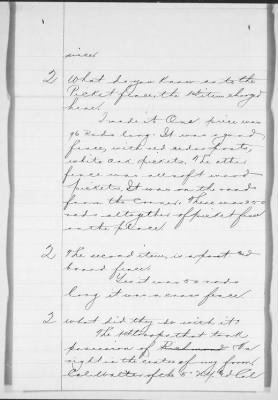 since
2 What do you know as to the
Picket fence, the 1st item charged
here.
I made it One piece was
96 Rods long. It was a good
fence, with red cedar posts,
white oak pickets. The other
fence was all soft wood
pickets. It was on the road
from the corner. There was 200
rods altogether of picket fence
on the place
2 The second item, is a post and
board fence.
Yes it was 50 rods
long it was a cross fence
2 What did they do with it?
The 1st troops that took
possession of Richmond
right in the center of my farm,
Col Walter of the 5"